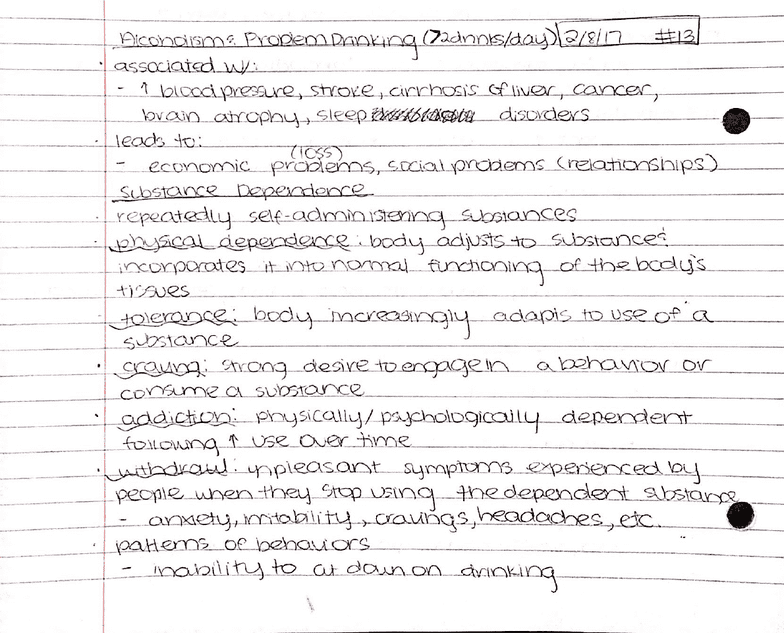 Alcoholism & Problem Drinking (>2drinks/day) 2/8/17 #13
· associated w/:
- ↑ blood pressure, stroke, cirrhosis of liver, cancer,
brain atrophy, sleep disorders
· leads to:
(loss)
- economic problems, social problems (relationships)
Substance Dependence
· repeatedly self-administering substances
· physical dependence: body adjusts to substance &
incorporates it into normal functioning of the body's
tissues
· tolerance: body increasingly adapts to use of a
substance
· craving: strong desire to engage in a behavior or
consume a substance
· addiction: physically/psychologically dependent
following ↑ use over time
· withdrawl: unpleasant symptoms experienced by
people when they stop using the dependent substance
- anxiety, irritability, cravings, headaches, etc.
· patterns of behaviors
- inability to cut down on drinking